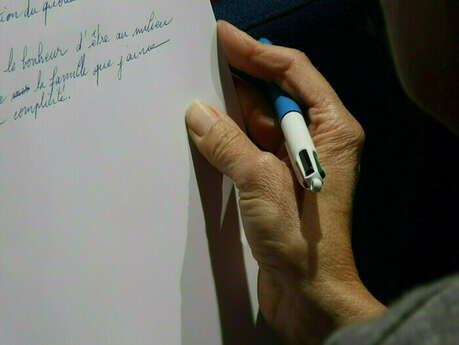 tion du
le bonheur d'être au milieu
la famille que j'aime
complète.